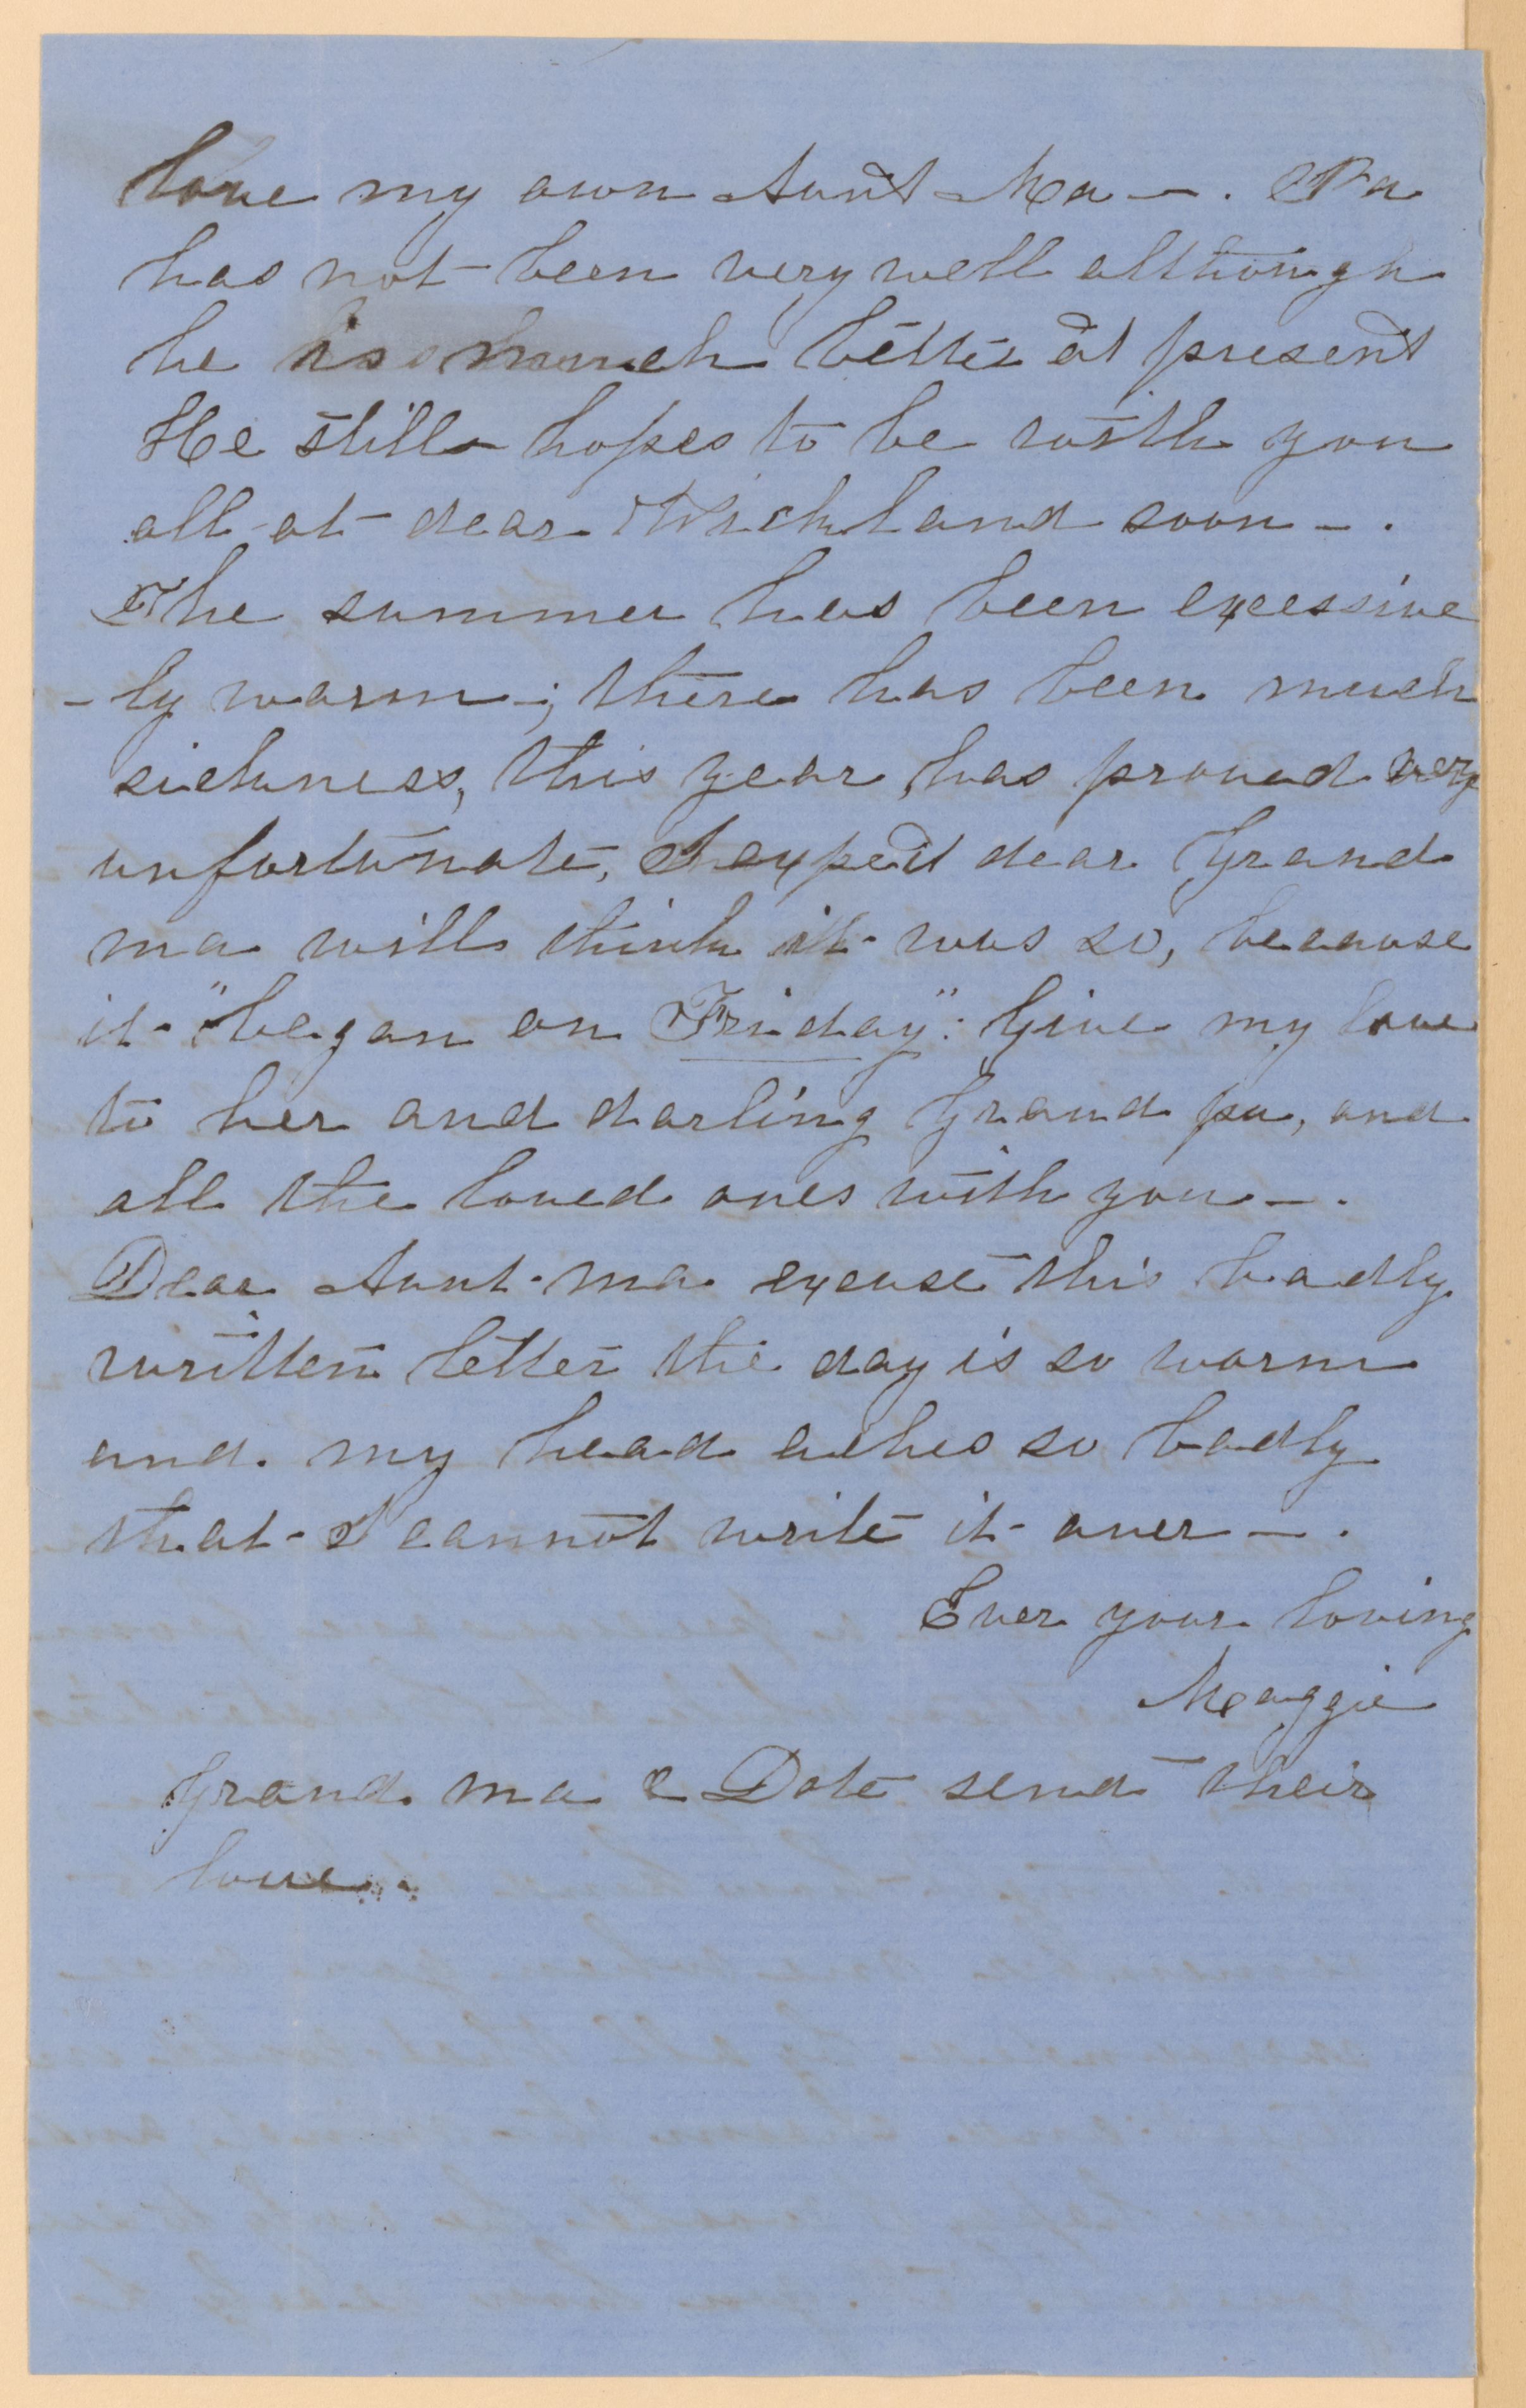 love my own Aunt Ma —. Pa
has not been very well although
he is much better at present
He still hopes to be with you
all at dear Wickland soon —.
The summer has been excessive
- ly warm -; there has been much
sickness, this year has proved very
unfortunate, I expect dear Grand
ma will think it was so, because
it "began on Friday". Give my love
to her and darling Grand pa, and
all the loved ones with you —.
Dear Aunt ma excuse this badly
written letter the day is so warm
and my head aches so badly
that I cannot write it over —.
Ever your loving
Maggie
Grand ma & Date send their
love.